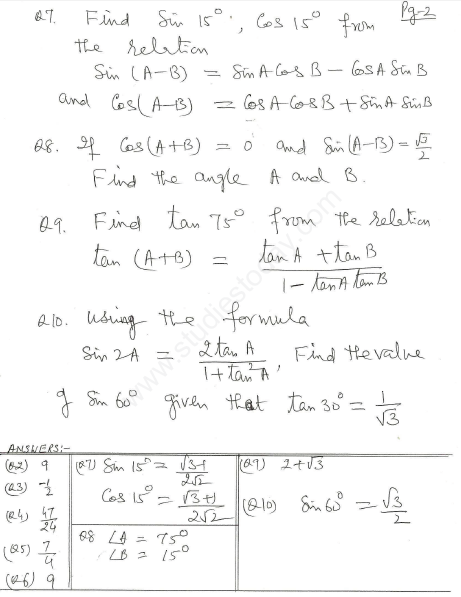 Pg-2
Q7. Find Sin 15°, Cos 15° from
the relation
Sin (A-B) = SinA Cos B - CosA Sin B
and Cos(A-B) = CosA CosB + SinA SinB
Q8. If Cos(A+B) = 0 and Sin(A-B) = √3/2
Find the angle A and B.
Q9. Find tan 75° from the relation
tan (A+B) = (tan A + tan B)/(1 - tanA tanB)
Q10. Using the formula
Sin 2A = 2tan A/(1+tan²A), Find the value
of Sin 60° given that tan 30° = 1/√3
www.studiestoday.com
ANSWERS:-
(Q2) 9
(Q3) -1/2
(Q4) 47/24
(Q5) 7/4
(Q6) 9
(Q7) Sin 15° = √3-1/2√2
Cos 15° = √3+1/2√2
Q8 ∠A = 75°
∠B = 15°
(Q9) 2+√3
(Q10) Sin 60° = √3/2